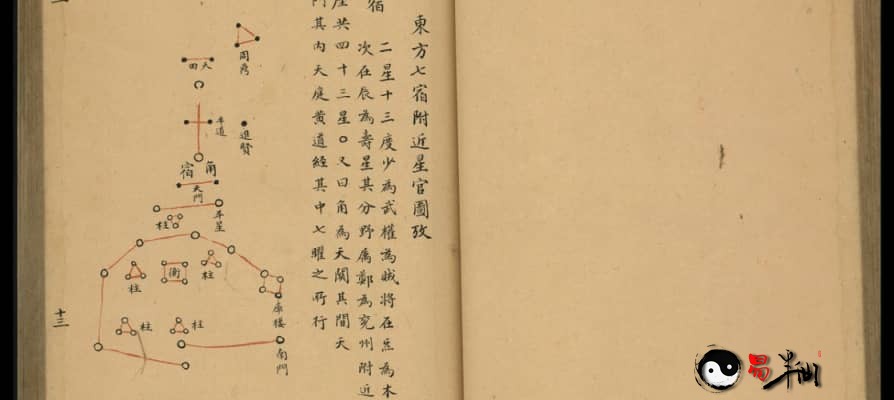 東方七宿附近星官圖攷
宿
二星十三度少為武權為賊將在㷱為本
次在辰為壽星其分野屬鄭為兗州附近
座共四十三星○又曰角為天闕其間天
門其內天庭黃道經其中七曜之所行
周鼎
天田
平道
進賢
角宿
天門
平星
柱
柱
衡
柱
柱
柱
庫樓
南門
十三
易半仙